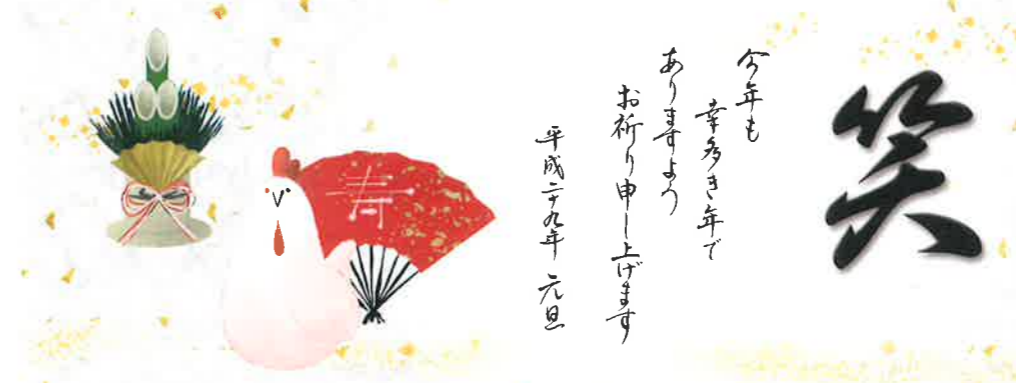 笑
今年も
幸多き年で
ありますよう
お祈り申し上げます
平成二十九年 元旦
寿